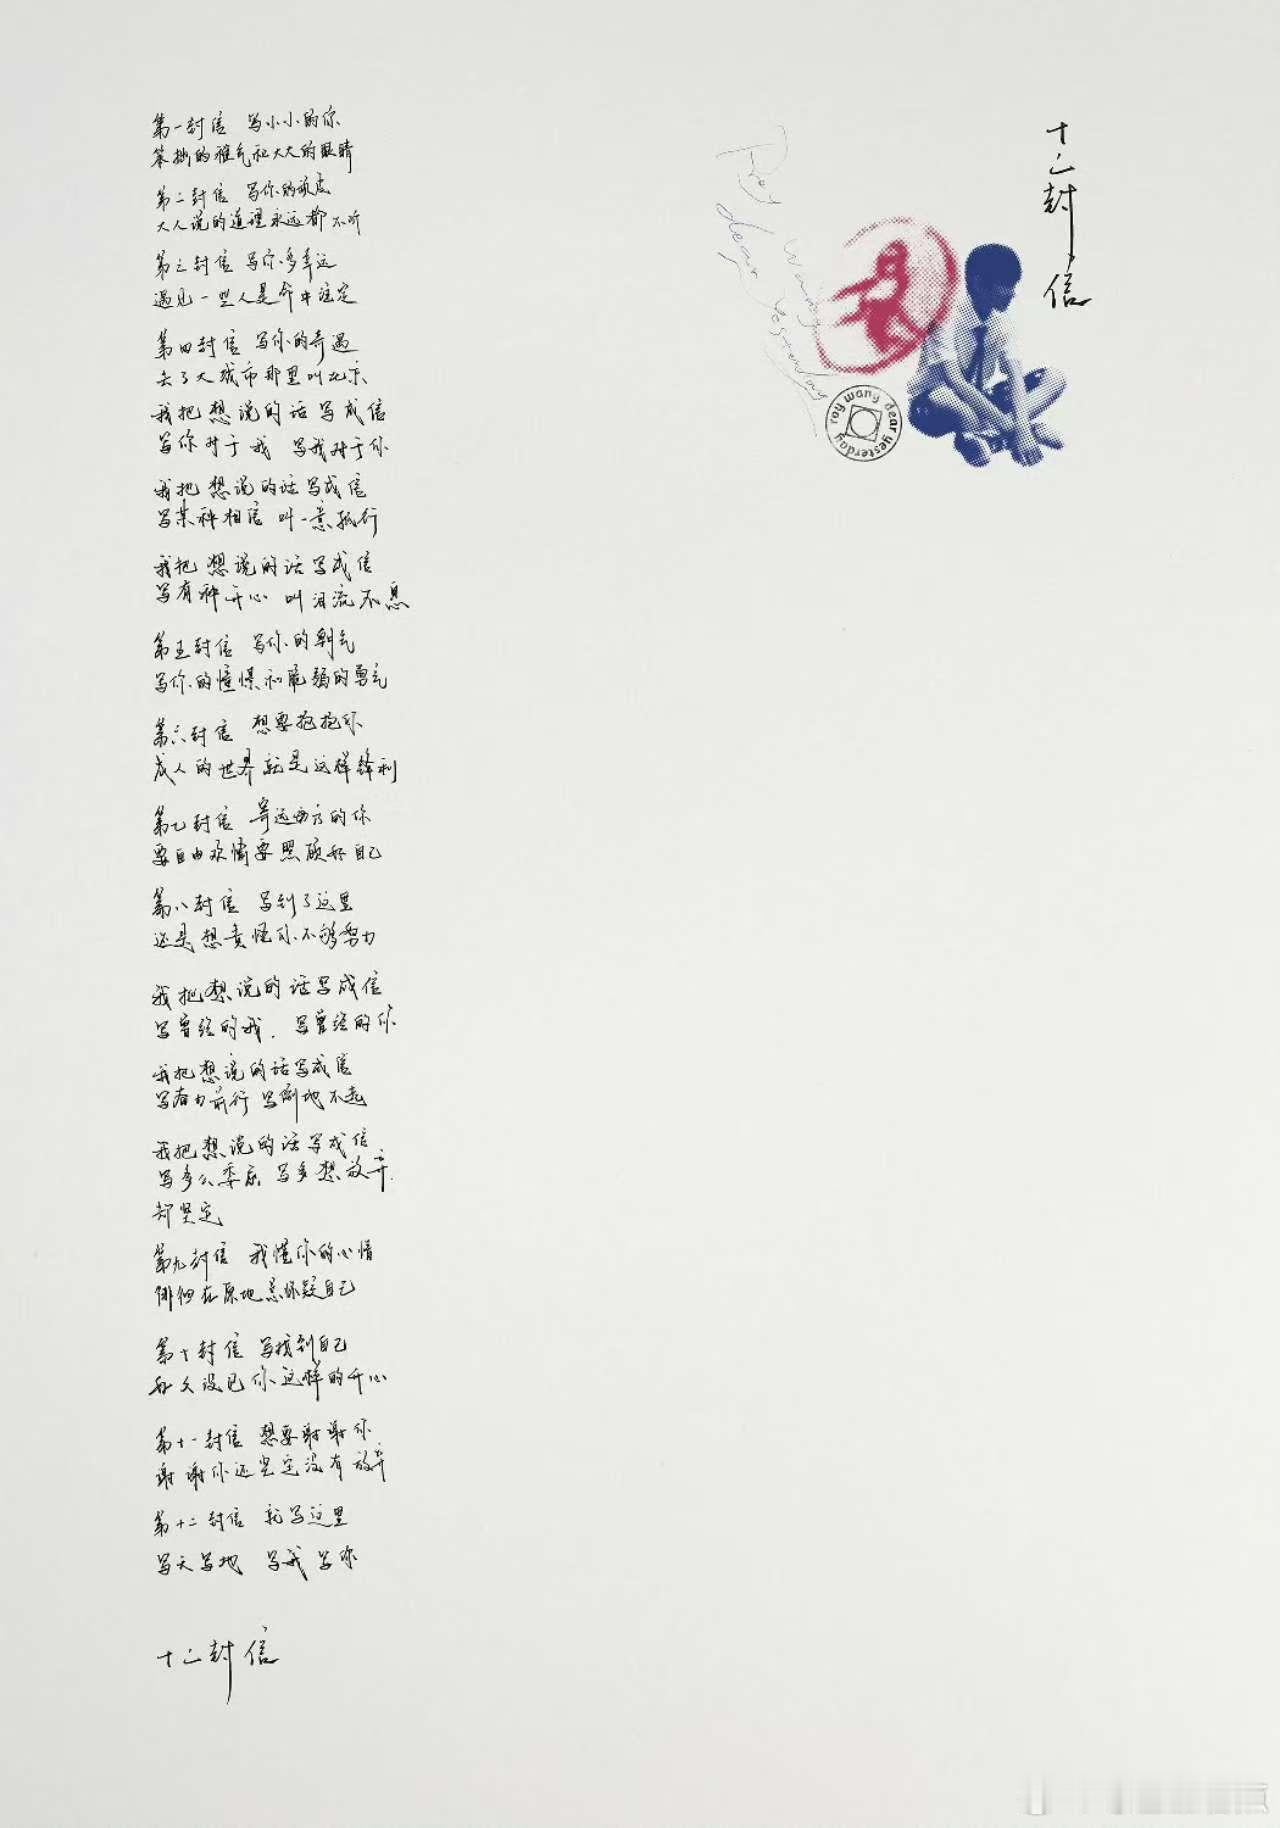 十二封信
Roy Wang
dear Yesterday
roy wang dear yesterday
第一封信 写小小的你
笨拙的稚气和大大的眼睛
第二封信 写你的叛逆
大人说的道理永远都不听
第三封信 写你多幸运
遇见一些人是命中注定
第四封信 写你的奇遇
去了大城市那里叫北京
我把想说的话写成信
写你对于我 写我对于你
我把想说的话写成信
写某种相信 叫一意孤行
我把想说的话写成信
写有种开心 叫泪流不息
第五封信 写你的朝气
写你的憧憬和脆弱的勇气
第六封信 想要抱抱你
成人的世界就是这样锋利
第七封信 寄远方的你
要自由欢愉要照顾好自己
第八封信 写到了这里
还是想责怪你不够努力
我把想说的话写成信
写曾经的我. 写曾经的你
我把想说的话写成信
写奋力前行 写倒地不起
我把想说的话写成信
写多么委屈 写多想放弃.
却坚定
第九封信 我懂你的心情
徘徊在原地总怀疑自己
第十封信 写找到自己
好久没见你这样的开心
第十一封信 想要谢谢你
谢谢你还坚定没有放弃
第十二封信 就写这里
写天写地 写我写你
十二封信